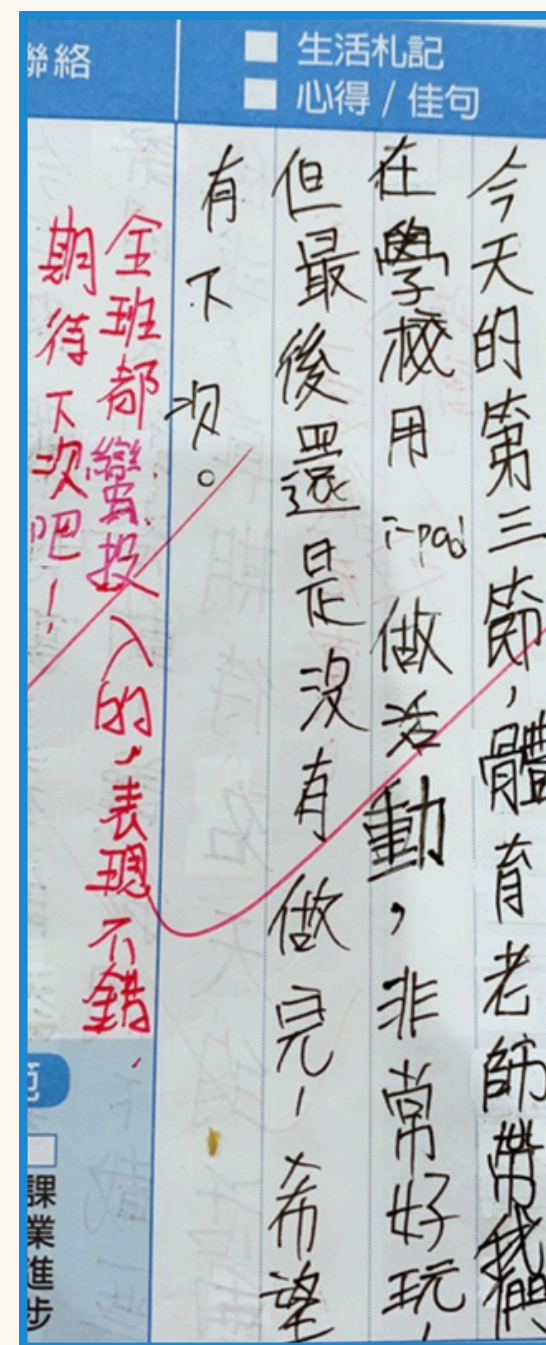 聯絡
生活札記
心得 / 佳句
今天的第三節，體育老師帶我們
在學校用i-pad做活動，非常好玩，
但最後還是沒有做完，希望
有下次。
全班都蠻投入的，表現不錯，
期待下次吧！
範
課業進步